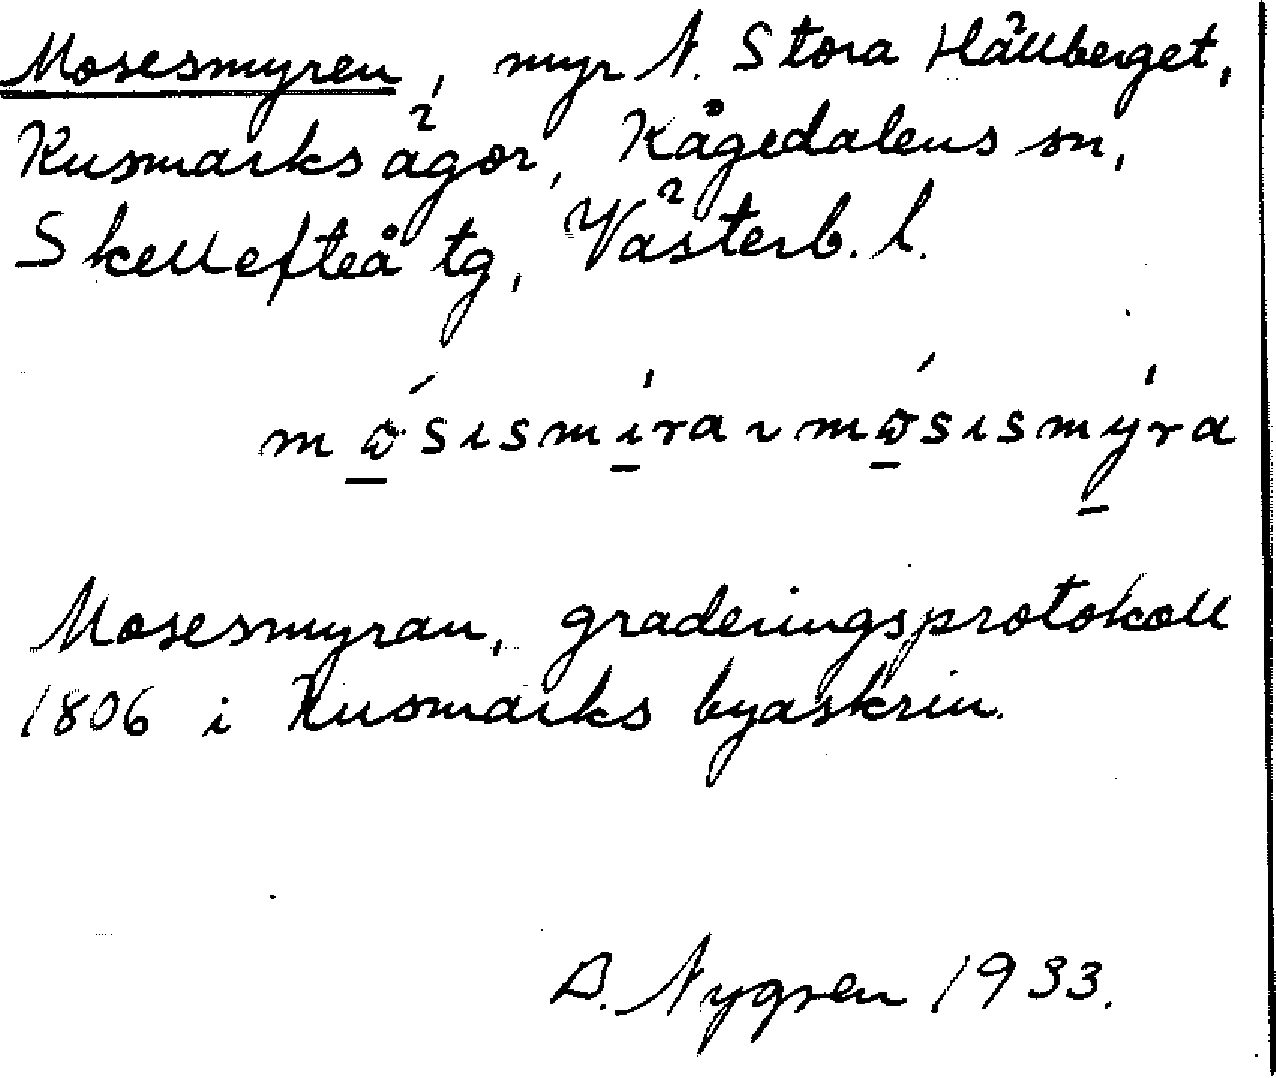 Mosesmyren, myr N. Stora Hällberget,
Kusmarks ägor, Kågedalens sn,
Skellefteå tg, Västerb. l.
mώ̲sısmi̲̍ra ~ mώ̲sısmy̲̍ra
Mosesmyran, graderingsprotokoll
1806 i Kusmarks byaskrin.
A. Nygren 1933.